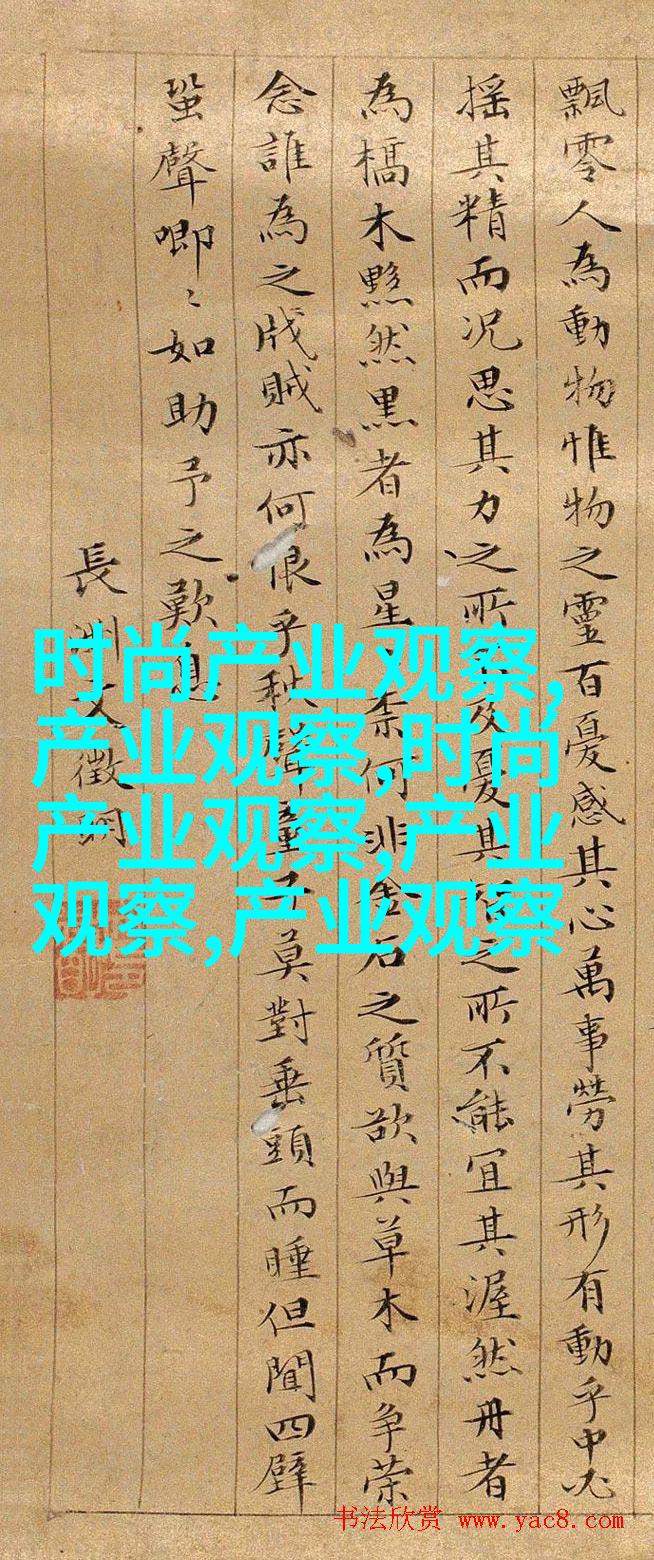 飄零人為動物惟物之靈百憂感其心萬事勞其形有動乎中必
搖其精而況思其力之所及憂其智之所不能宜其渥然丹者
為槁木黟然黑者為星〻柰何非金石之質欲與草木而爭榮
念誰為之戕賊亦何恨乎秋聲童子莫對垂頭而睡但聞四壁
蛩聲唧〻如助予之歎息
長洲文徵明
时尚产业观察,
产业观察,时尚
产业观察,产业
观察,产业观察
书法欣赏 www.yac8.com